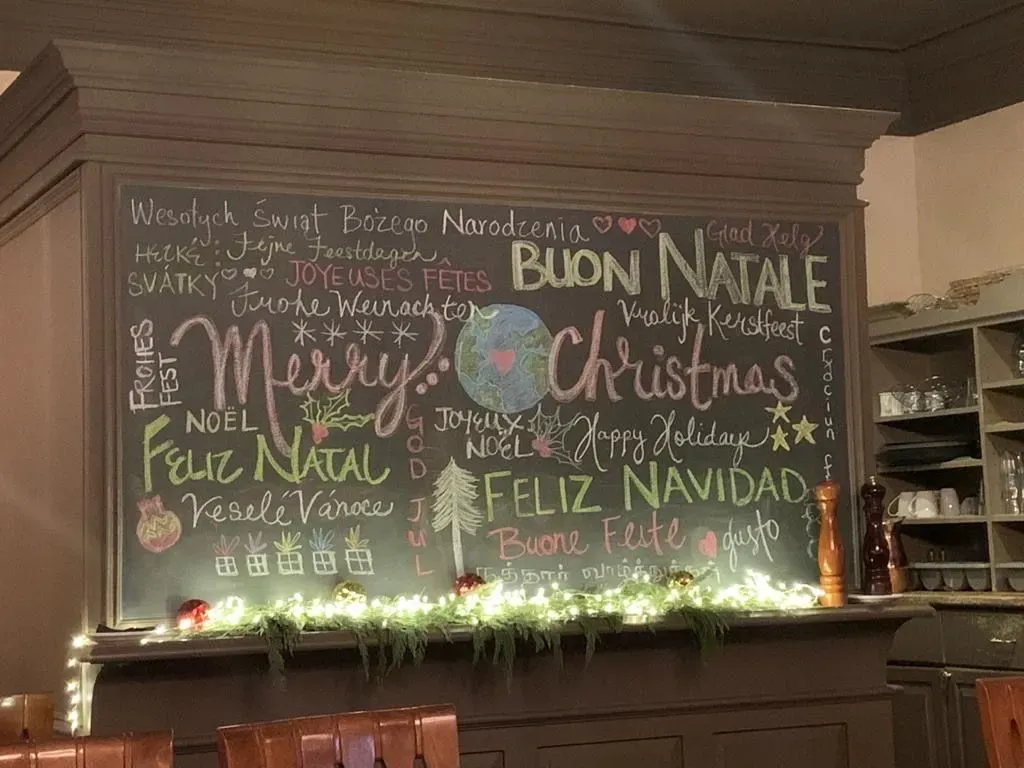 Wesołych Świąt Bożego Narodzenia
Glad Helg
HEZKÉ :
SVÁTKY
Fejne Feestdagen
JOYEUSES FÊTES
BUON NATALE
Frohe Weinachten
Vralijk Kerstfeest
FROHES
FEST
Merry
Christmas
NOËL
JOYEUX
NOËL
Happy Holidays
GOD JUL
FELIZ NATAL
FELIZ NAVIDAD
Veselé Vánoce
Buone Feste
gusto
வாழ்த்துகள்